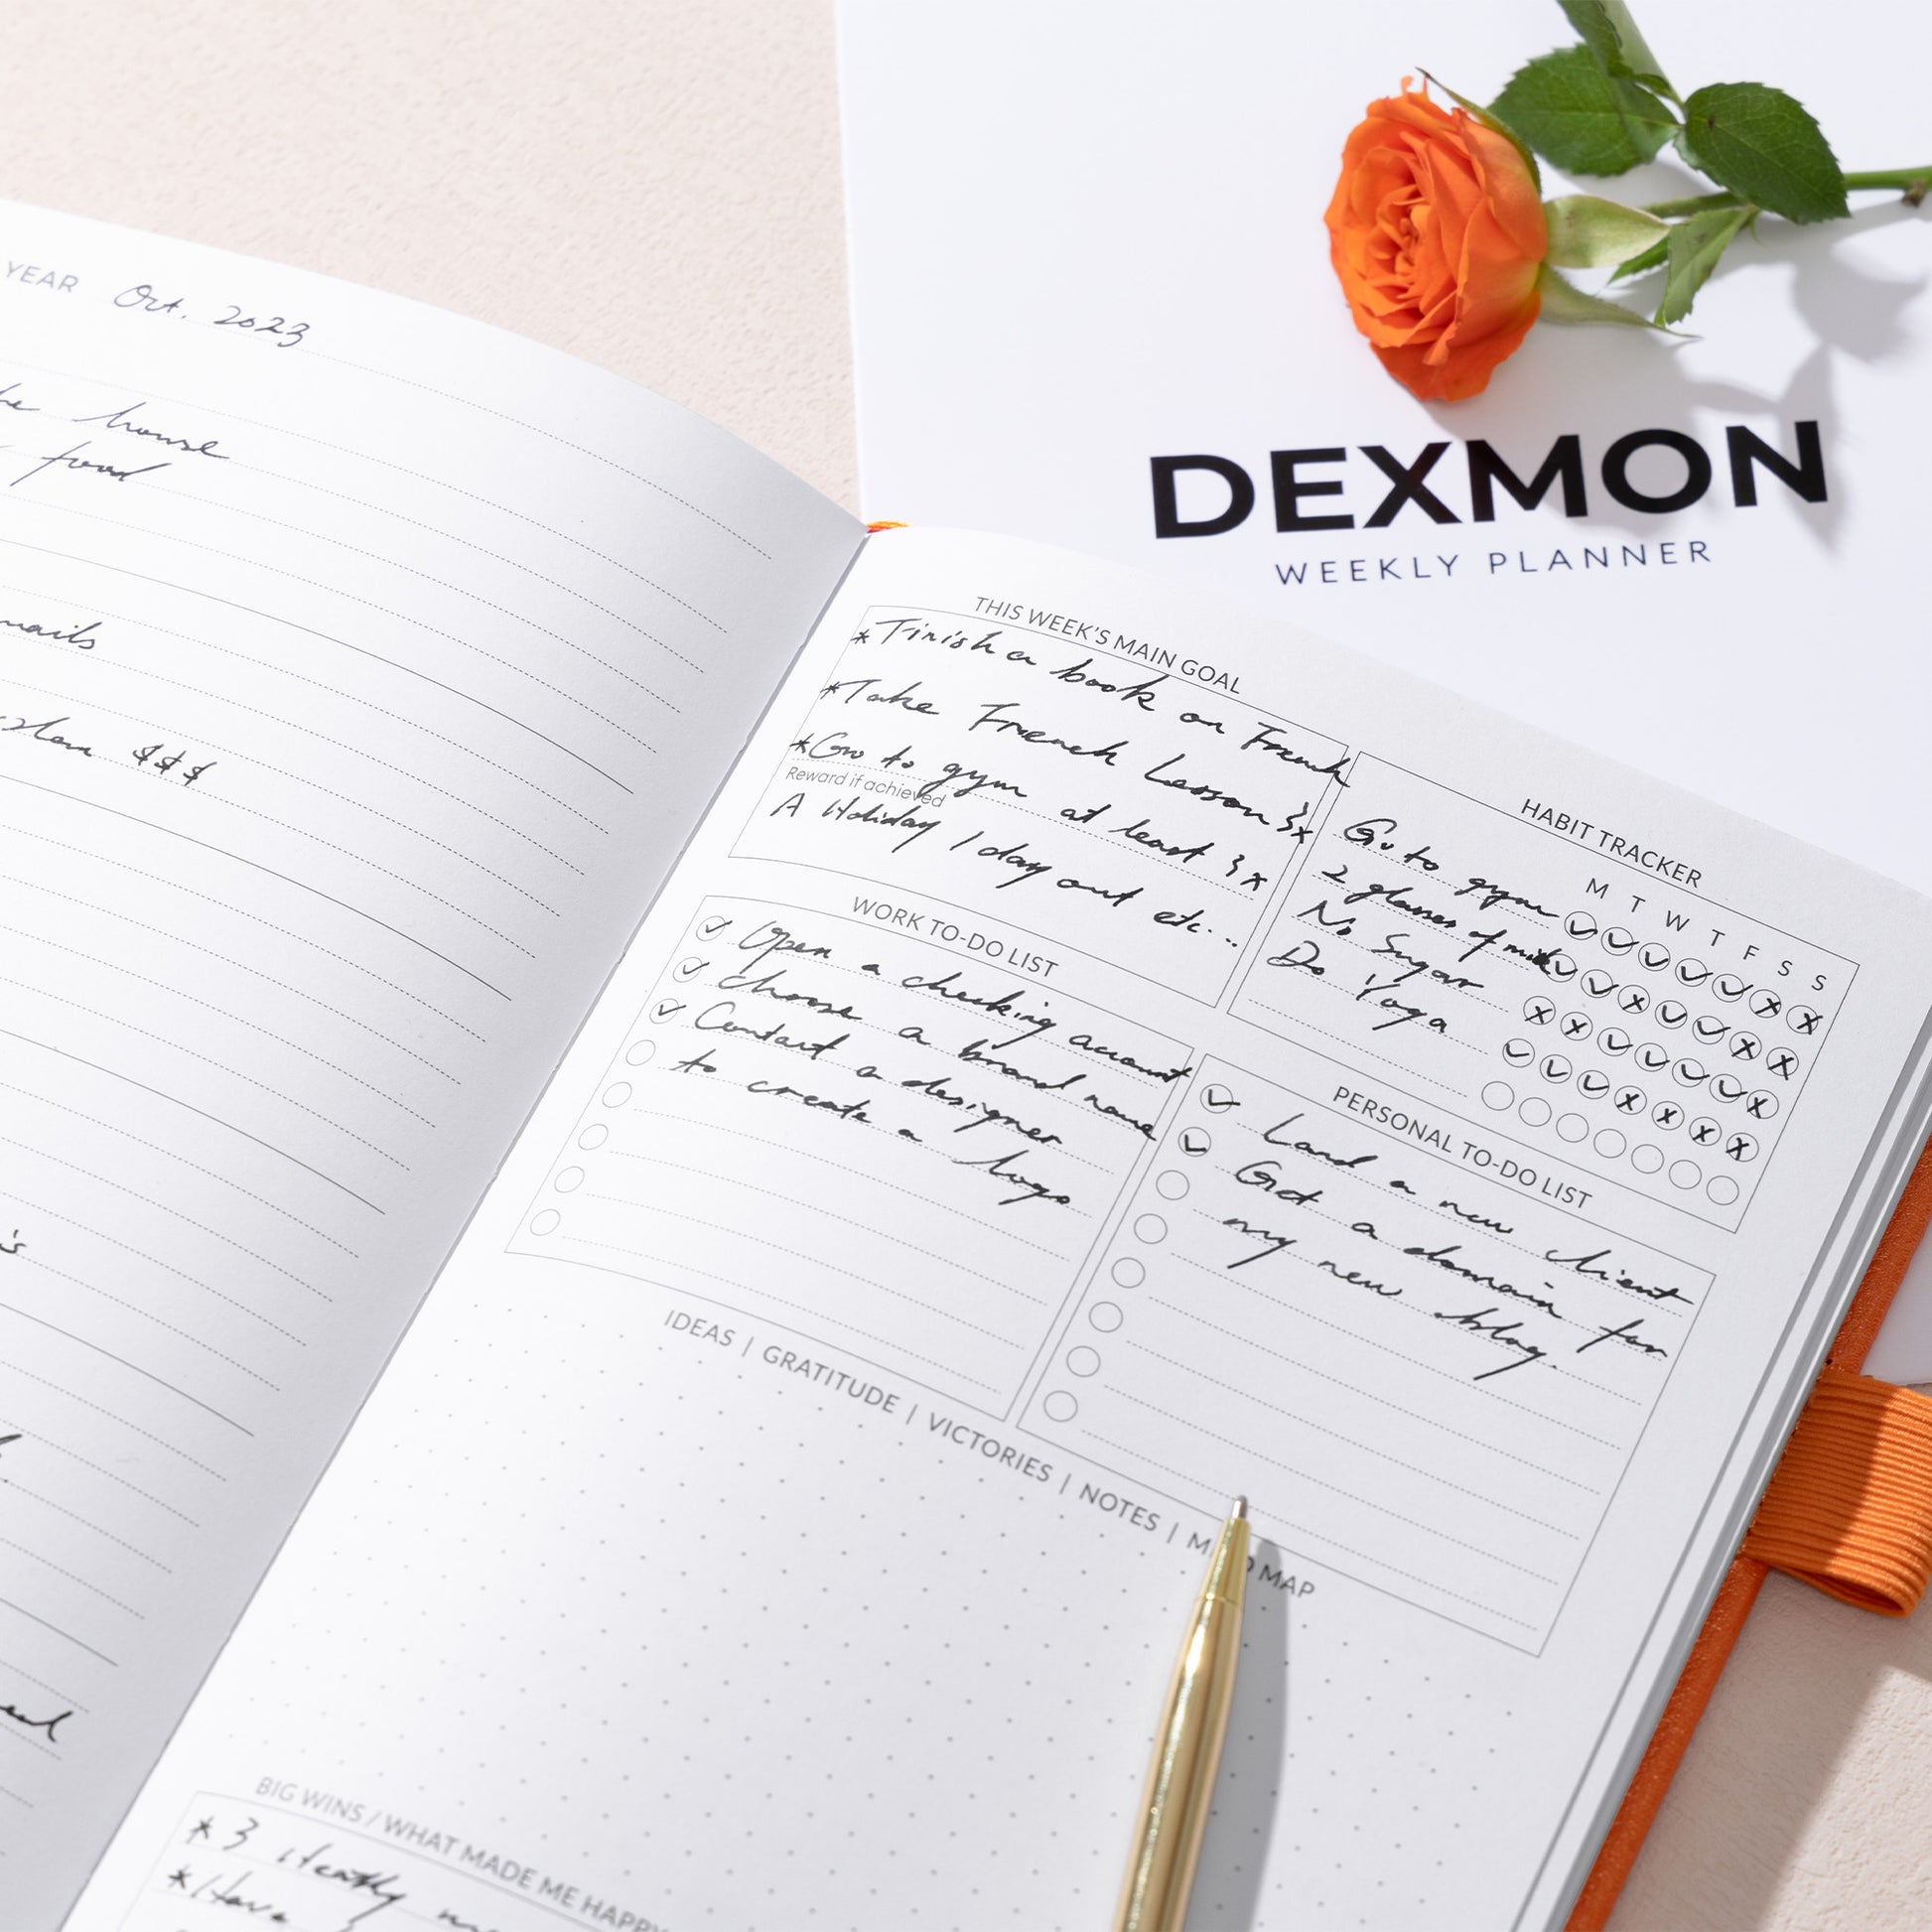 DEXMON
WEEKLY PLANNER
YEAR Oct. 2023
house
food
mails
$$$
THIS WEEK'S MAIN GOAL
*Finish a book on French
*Take French Lesson 3x
*Go to gym at least 3x
Reward if achieved
A Holiday 1 day out etc...
HABIT TRACKER
M T W T F S S
Go to gym
2 glasses of milk
No Sugar
Do Yoga
WORK TO-DO LIST
Open a checking account
Choose a brand name
Contact a designer
to create a logo
PERSONAL TO-DO LIST
Land a new client
Get a domain for
my new blog.
IDEAS | GRATITUDE | VICTORIES | NOTES | MIND MAP
BIG WINS / WHAT MADE ME HAPPY
* 3
* Have